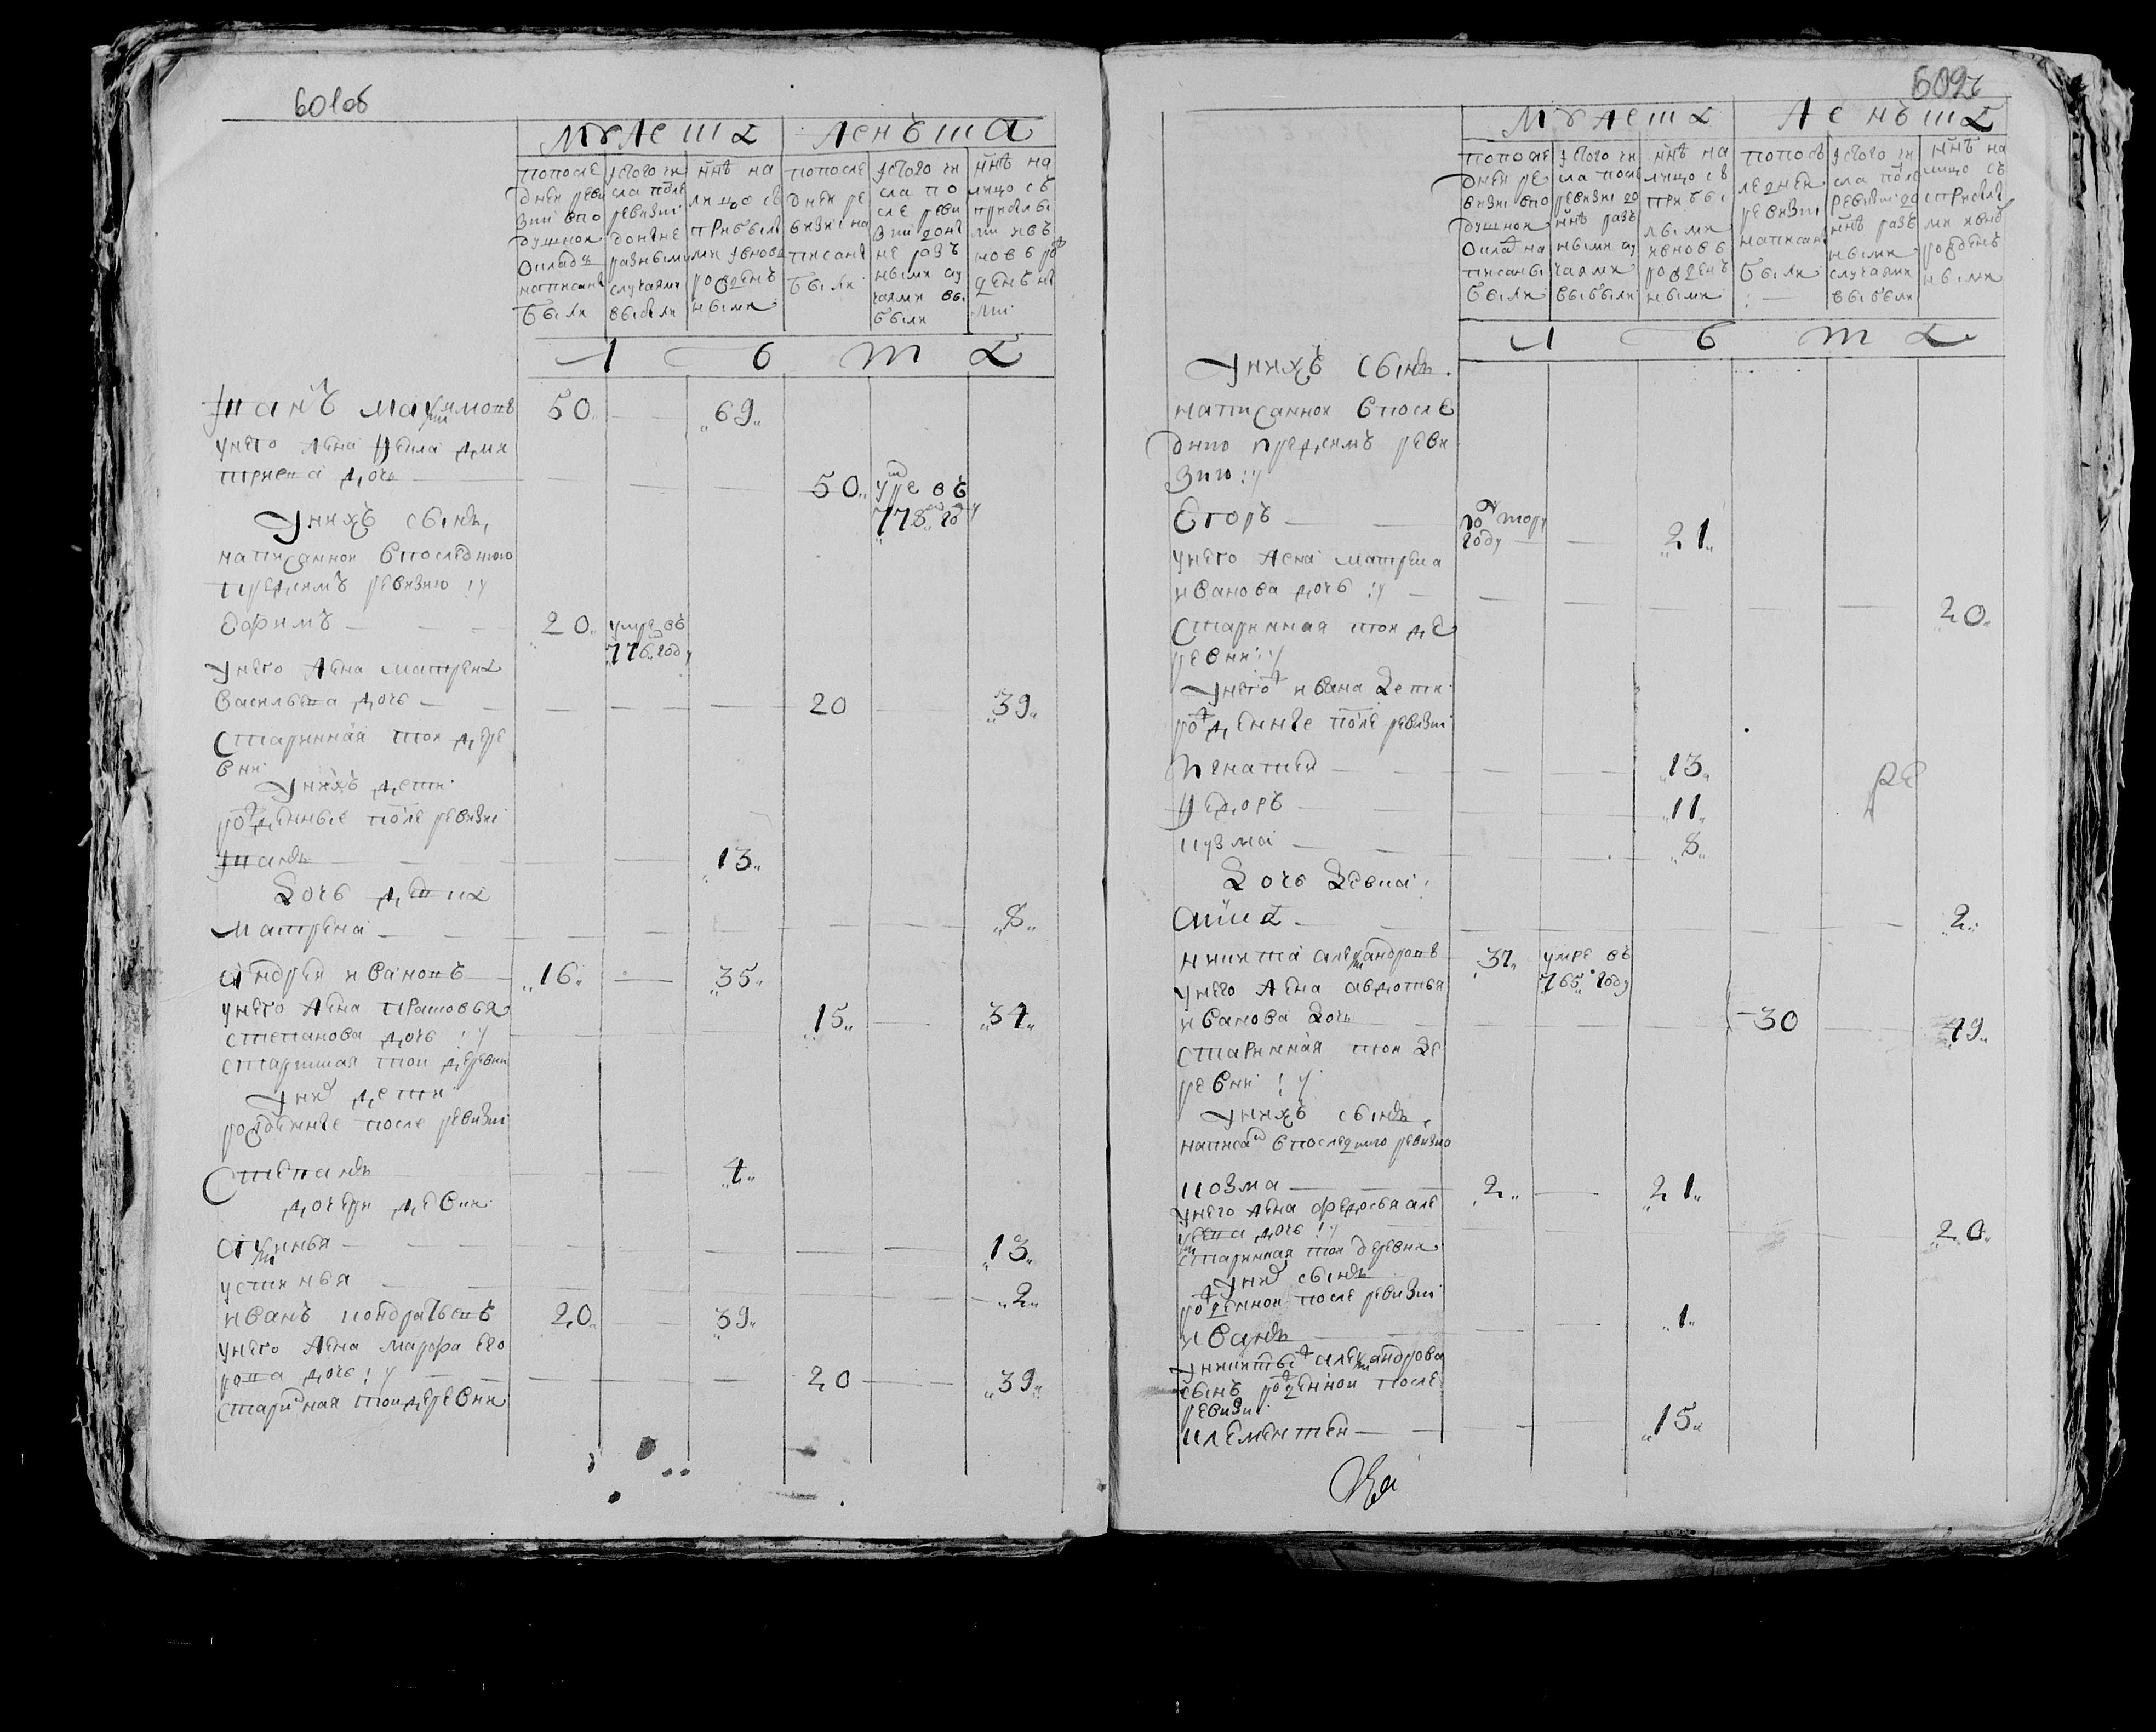 601об
мужеска
женъска
попосле
дней реви
зии впо
душной
окладъ
написаны
были
устого чи
сла после
ревизиі
доныне
разными
случаями
выбыли
нне на
лицо съ
прибылы
ми ивновь
рожденъ
ными
попосле
дней ре
визиі на
писаны
были
устого чи
сла по
сле реви
зиі доны
не разъ
ными слу
чаями вы
были
нне на
лицо съ
прибылы
ми ивъ
новь ро
жденъны
ми
л е т а
иванъ макимовъ 50 69
унего жена дми
триева дочь 50 умре въ
778 го
унихъ сынъ
написанной впоследнюю
предъсимъ ревизию
Ефимъ 20 умре въ
776 году
унего жена матрена
васильева дочь 20 39
старинная той дере
вни
унихъ дети
рожденные после ревизиі
иванъ 13
дочь девка
матрена 8
андрей ивановъ 16 35
унего жена прасковья
степанова дочь 15 34
старинная той деревни
уних дети
рожденные после ревизиі
степанъ 4
дочери девки
13
устинья 2
иванъ кондратьевъ 20 39
унего жена марфа его
рова дочь 20 39
старинная той деревни
602
мужеска
женъска
попосле
дней ре
визиі впо
душной
оклад на
писаны
были
устого чи
сла после
ревизиі до
нне разъ
ными слу
чаями
выбыли
нне на
лицо съ
прибы
лыми
ивновь
рожденъ
ными
попосъ
ледней
ревизиі
написаны
были
устого чи
сла после
ревизиі до
нне разъ
ными
случаями
выбыли
нне на
лицо съ
прибылы
ми ивнов
рожденъ
ными
л е т а
унихъ сынъ
написанной впосле
днюю предъсимъ реви
зию
Егоръ году 21
унего жена матрена
иванова дочь 20
старинная той де
ревни
унего ж ивана дети
рожденные после ревизиі
игнатей 13
федоръ 11
кузма 8
дочь девка
анна 2
никита александровъ 37 умре въ
765 году
унего жена авдотья
иванова дочь 30 49
старинная той де
ревни
унихъ сынъ
написан впоследнюю ревизию
козма 2 21
унего жена федосья але
ева дочь 20
старинная той деревни
уних сынъ
рожденной после ревизиі
иванъ 1
уникиты ж александрова
сынъ рожденной после
ревизиі
клементей 15